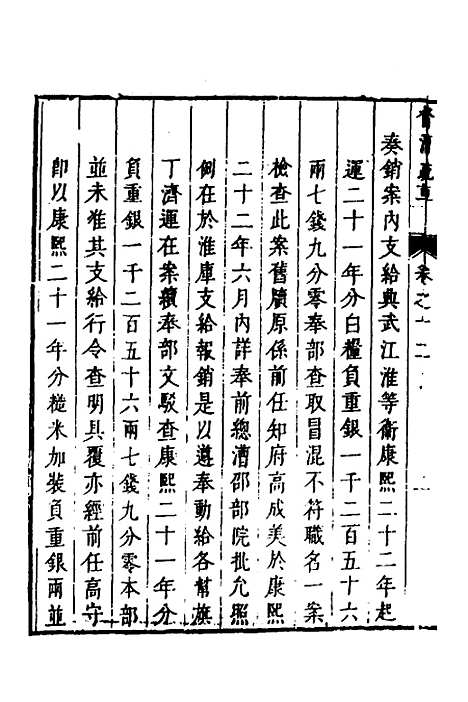 卷之十二
奏銷案內支給興武江淮等衛康熙二十二年起
運二十一年分白糧負重銀一千二百五十六
兩七錢九分零奉部查取冒混不符職名一案
檢查此案舊牘原係前任知府高成美於康熙
二十二年六月內詳奉前總漕邵部院批允照
例在於淮庫支給報銷是以遵奉動給各幫旗
丁濟運在案續奉部文駁查康熙二十一年分
負重銀一千二百五十六兩七錢九分零本部
並未准其支給行令查明具覆亦經前任高守
即以康熙二十一年分糙米加裝負重銀兩並